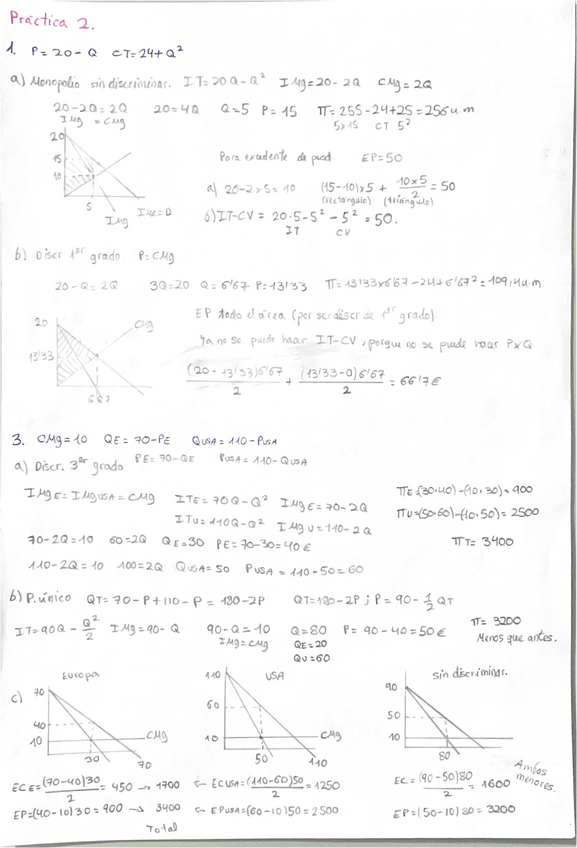 Práctica 2.
1. P = 20 - Q CT = 24 + Q²
a) Monopolio sin discriminar. IT = 20Q - Q² IMg = 20 - 2Q CMg = 2Q
20 - 2Q = 2Q 20 = 4Q Q = 5 P = 15 π = 255 - 24 + 25 = 256 u.m
IMg = CMg 5x15 CT 5²
20
15
10
5
IMg
Para excedente de prod. EP = 50
a) 20 - 2 x 5 = 10 (15 - 10) x 5 + 10 x 5 / 2 = 50
(rectángulo) (triángulo)
b) IT - CV = 20·5 - 5² - 5² = 50.
IT CV
b) Discr 1er grado P = CMg
20 - Q = 2Q 3Q = 20 Q = 6'67 P = 13'33 π = 13'33 x 6'67 - 24 + 6'67² = 109,4 u.m
20
13'33
6'67
CMg
EP todo el área (por ser discr de 1er grado)
Ya no se puede hacer IT - CV, porque no se puede hacer P x Q
(20 - 13'33)6'67 / 2 + (13'33 - 0)6'67 / 2 = 66'7€
3. CMg = 10 QE = 70 - PE QUSA = 110 - PUSA
a) Discr. 3er grado PE = 70 - QE PUSA = 110 - QUSA
IMgE = IMgUSA = CMg ITE = 70Q - Q² IMgE = 70 - 2Q πE = (30·40) - (10·30) = 900
ITU = 110Q - Q² IMgU = 110 - 2Q πU = (50·60) - (10·50) = 2500
70 - 2Q = 10 60 = 2Q QE = 30 PE = 70 - 30 = 40€ πT = 3400
110 - 2Q = 10 100 = 2Q QUSA = 50 PUSA = 110 - 50 = 60
b) P. único QT = 70 - P + 110 - P = 180 - 2P QT = 180 - 2P ; P = 90 - 1/2 QT
IT = 90Q - Q²/2 IMg = 90 - Q 90 - Q = 10 Q = 80 P = 90 - 40 = 50€ π = 3200
IMg = CMg QE = 20 Menos que antes.
QU = 60
c) Europa USA sin discriminar.
70 40 10 30 70 CMg
110 60 10 50 110 CMg
90 50 10 80
ECE = (70 - 40)30 / 2 = 450 → 1700 ← ECUSA = (110 - 60)50 / 2 = 1250 EC = (90 - 50)80 / 2 = 1600 Ambos menores.
EP = (40 - 10)30 = 900 → 3400 ← EPUSA = (60 - 10)50 = 2500 EP = (50 - 10)80 = 3200
Total